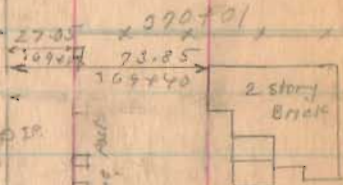 370+01
27.05
73.85
369+40
2 story
Brick
I.P.